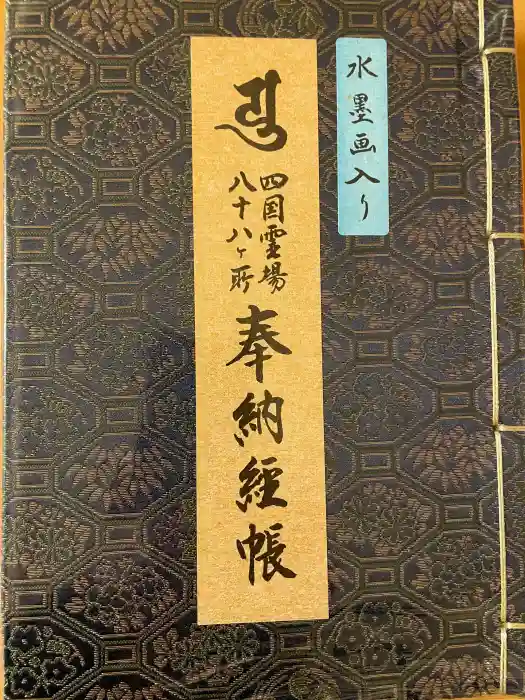 水墨画入り
𑖧𑖲
四国霊場
八十八ヶ所
奉納経帳